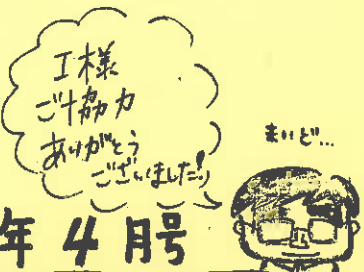 I様
ご協力
ありがとう
ございました!
まいど...
年4月号